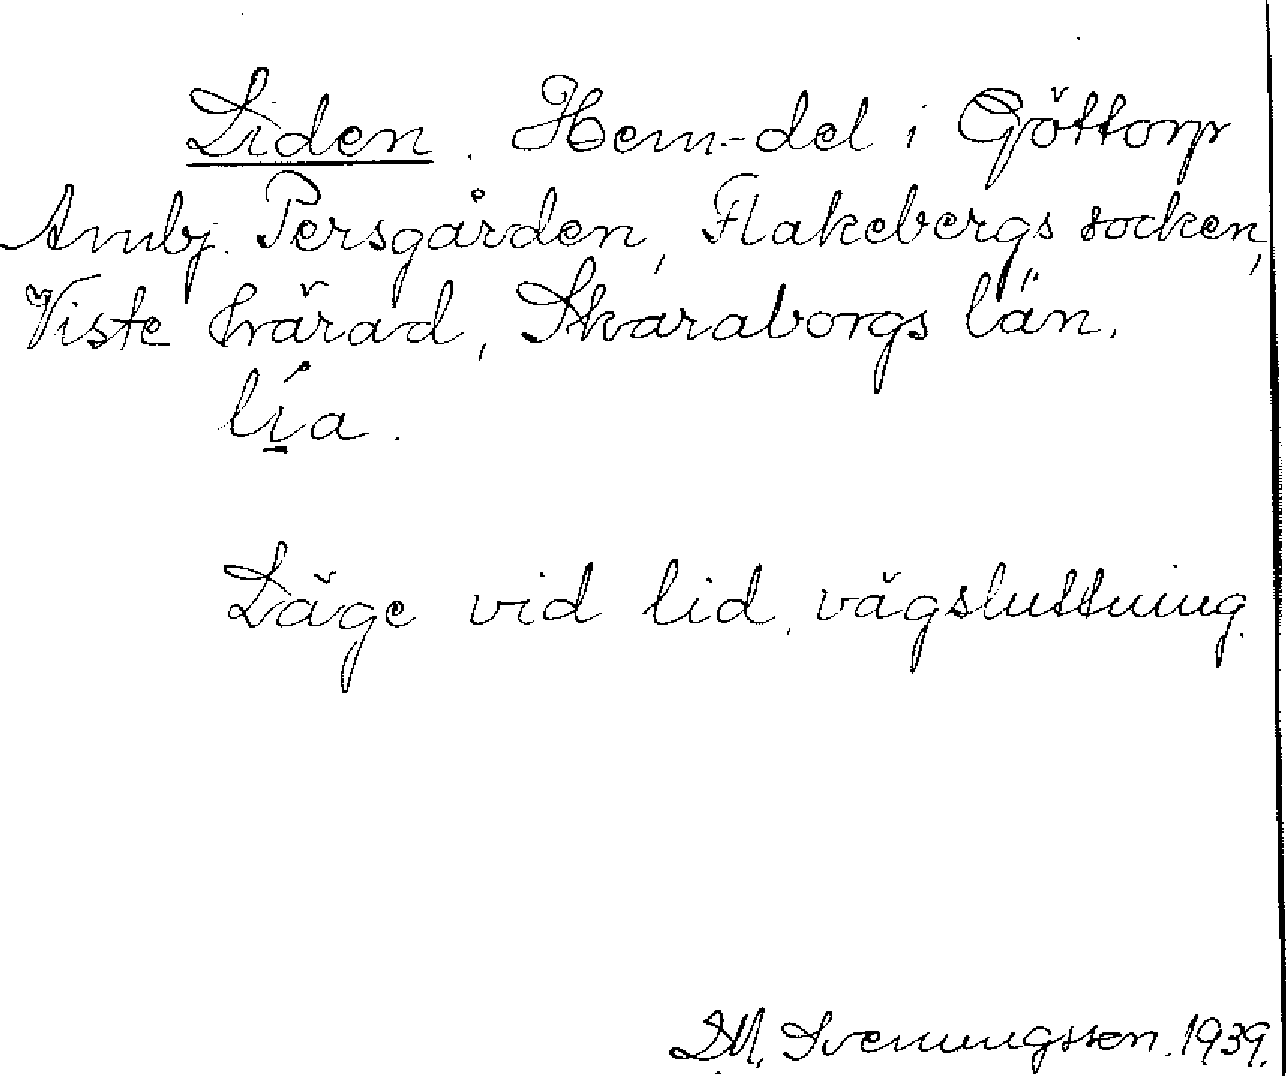 Liden. Hem-del i Göttorp
Arnbj. Persgården, Flakebergs socken,
Viste härad, Skaraborgs län.
lía.
Läge vid lid, vägsluttning.
D.M. Svenungsson. 1939.